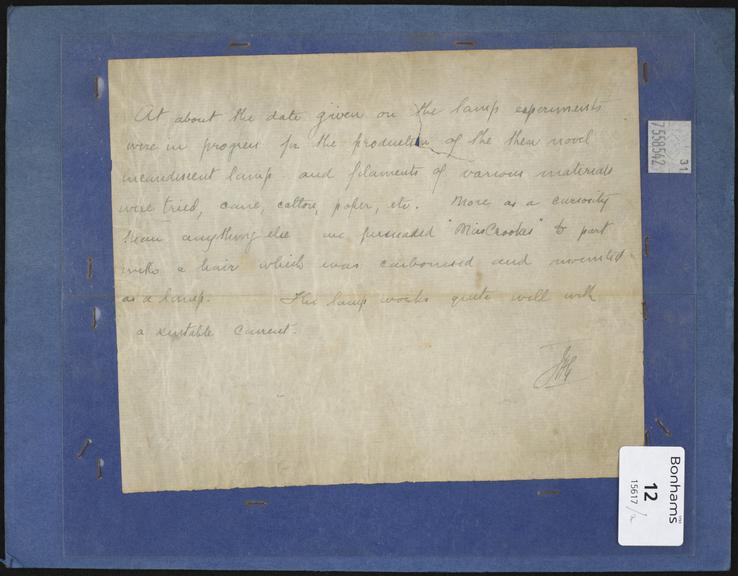 At about the date given on the lamp experiments
were in progress for the production of the then novel
incandescent lamp and filaments of various materials
were tried, cane, cotton, paper, etc. More as a curiosity
than anything else we persuaded "Miss Crookes" to part
with a hair which was carbonised and mounted
as a lamp. The lamp works quite well with
a suitable current.
31
7558542
Bonhams
12
15617/